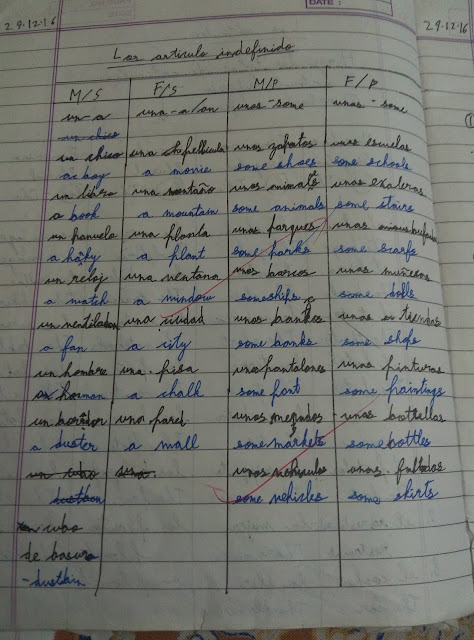 29.12.16
DATE :
29.12.16
Los articulo indefinido
M/S F/S M/P F/P
un-a una-a/an unos-some unas-some
un chico
un chico una pellicula unos zapatos unas escuelas
a boy a movie some shoes some schools
un libro una montaño unos animales unas exaleras
a book a mountain some animals some stairs
un panuelo una planta unos parques unas
a hanky a plant some parks some scarfs
un reloj una ventana unos barcos unas muñecas
a watch a window someships some dolls
un ventilador una ciudad unos bancos unas tiendas
a fan a city some banks some shops
un hombre una pisa unopantalones unas pinturas
a man a chalk some pant some paintings
un borrador una pared unos mercados unas botellas
a duster a wall some markets some bottles
un cubo una unos vehiculos unas faldas
dustbin some vehicles some skirts
un cubo
de basura
-dustbin